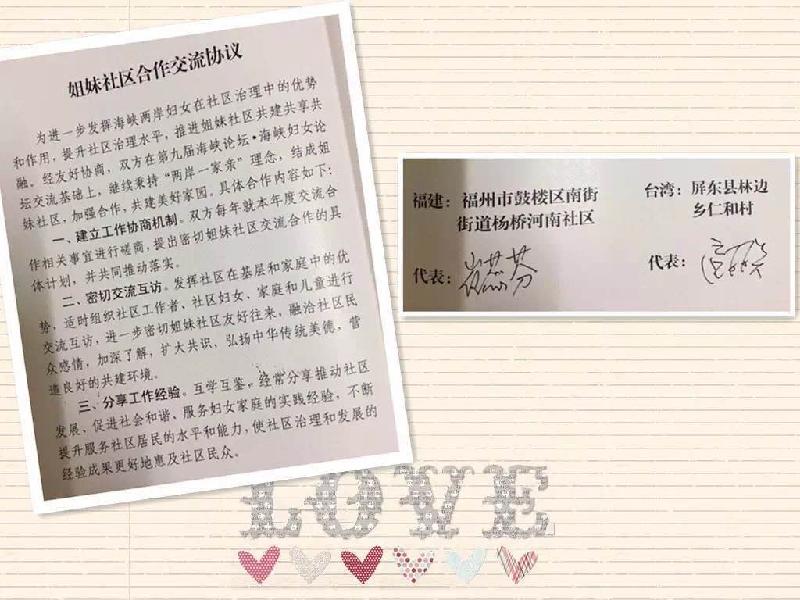 姐妹社区合作交流协议
为进一步发挥海峡两岸妇女在社区治理中的优势
和作用，提升社区治理水平，推进姐妹社区共建共享共
融。经友好协商，双方在第九届海峡论坛·海峡妇女论
坛交流基础上，继续秉持“两岸一家亲”理念，结成姐
妹社区，加强合作，共建美好家园。具体合作内容如下：
一、建立工作协商机制。双方每年就本年度交流合
作相关事宜进行磋商，提出密切姐妹社区交流合作的具
体计划，并共同推动落实。
二、密切交流互访。发挥社区在基层和家庭中的优
势，适时组织社区工作者、社区妇女、家庭和儿童进行
交流互访，进一步密切姐妹社区友好往来，融洽社区民
众感情，加深了解，扩大共识，弘扬中华传统美德，营
造良好的共建环境。
三、分享工作经验。互学互鉴，经常分享推动社区
发展、促进社会和谐、服务妇女家庭的实践经验，不断
提升服务社区居民的水平和能力，使社区治理和发展的
经验成果更好地惠及社区民众。
福建：福州市鼓楼区南街
街道杨桥河南社区
代表：
台湾：屏东县林边
乡仁和村
代表：
LOVE